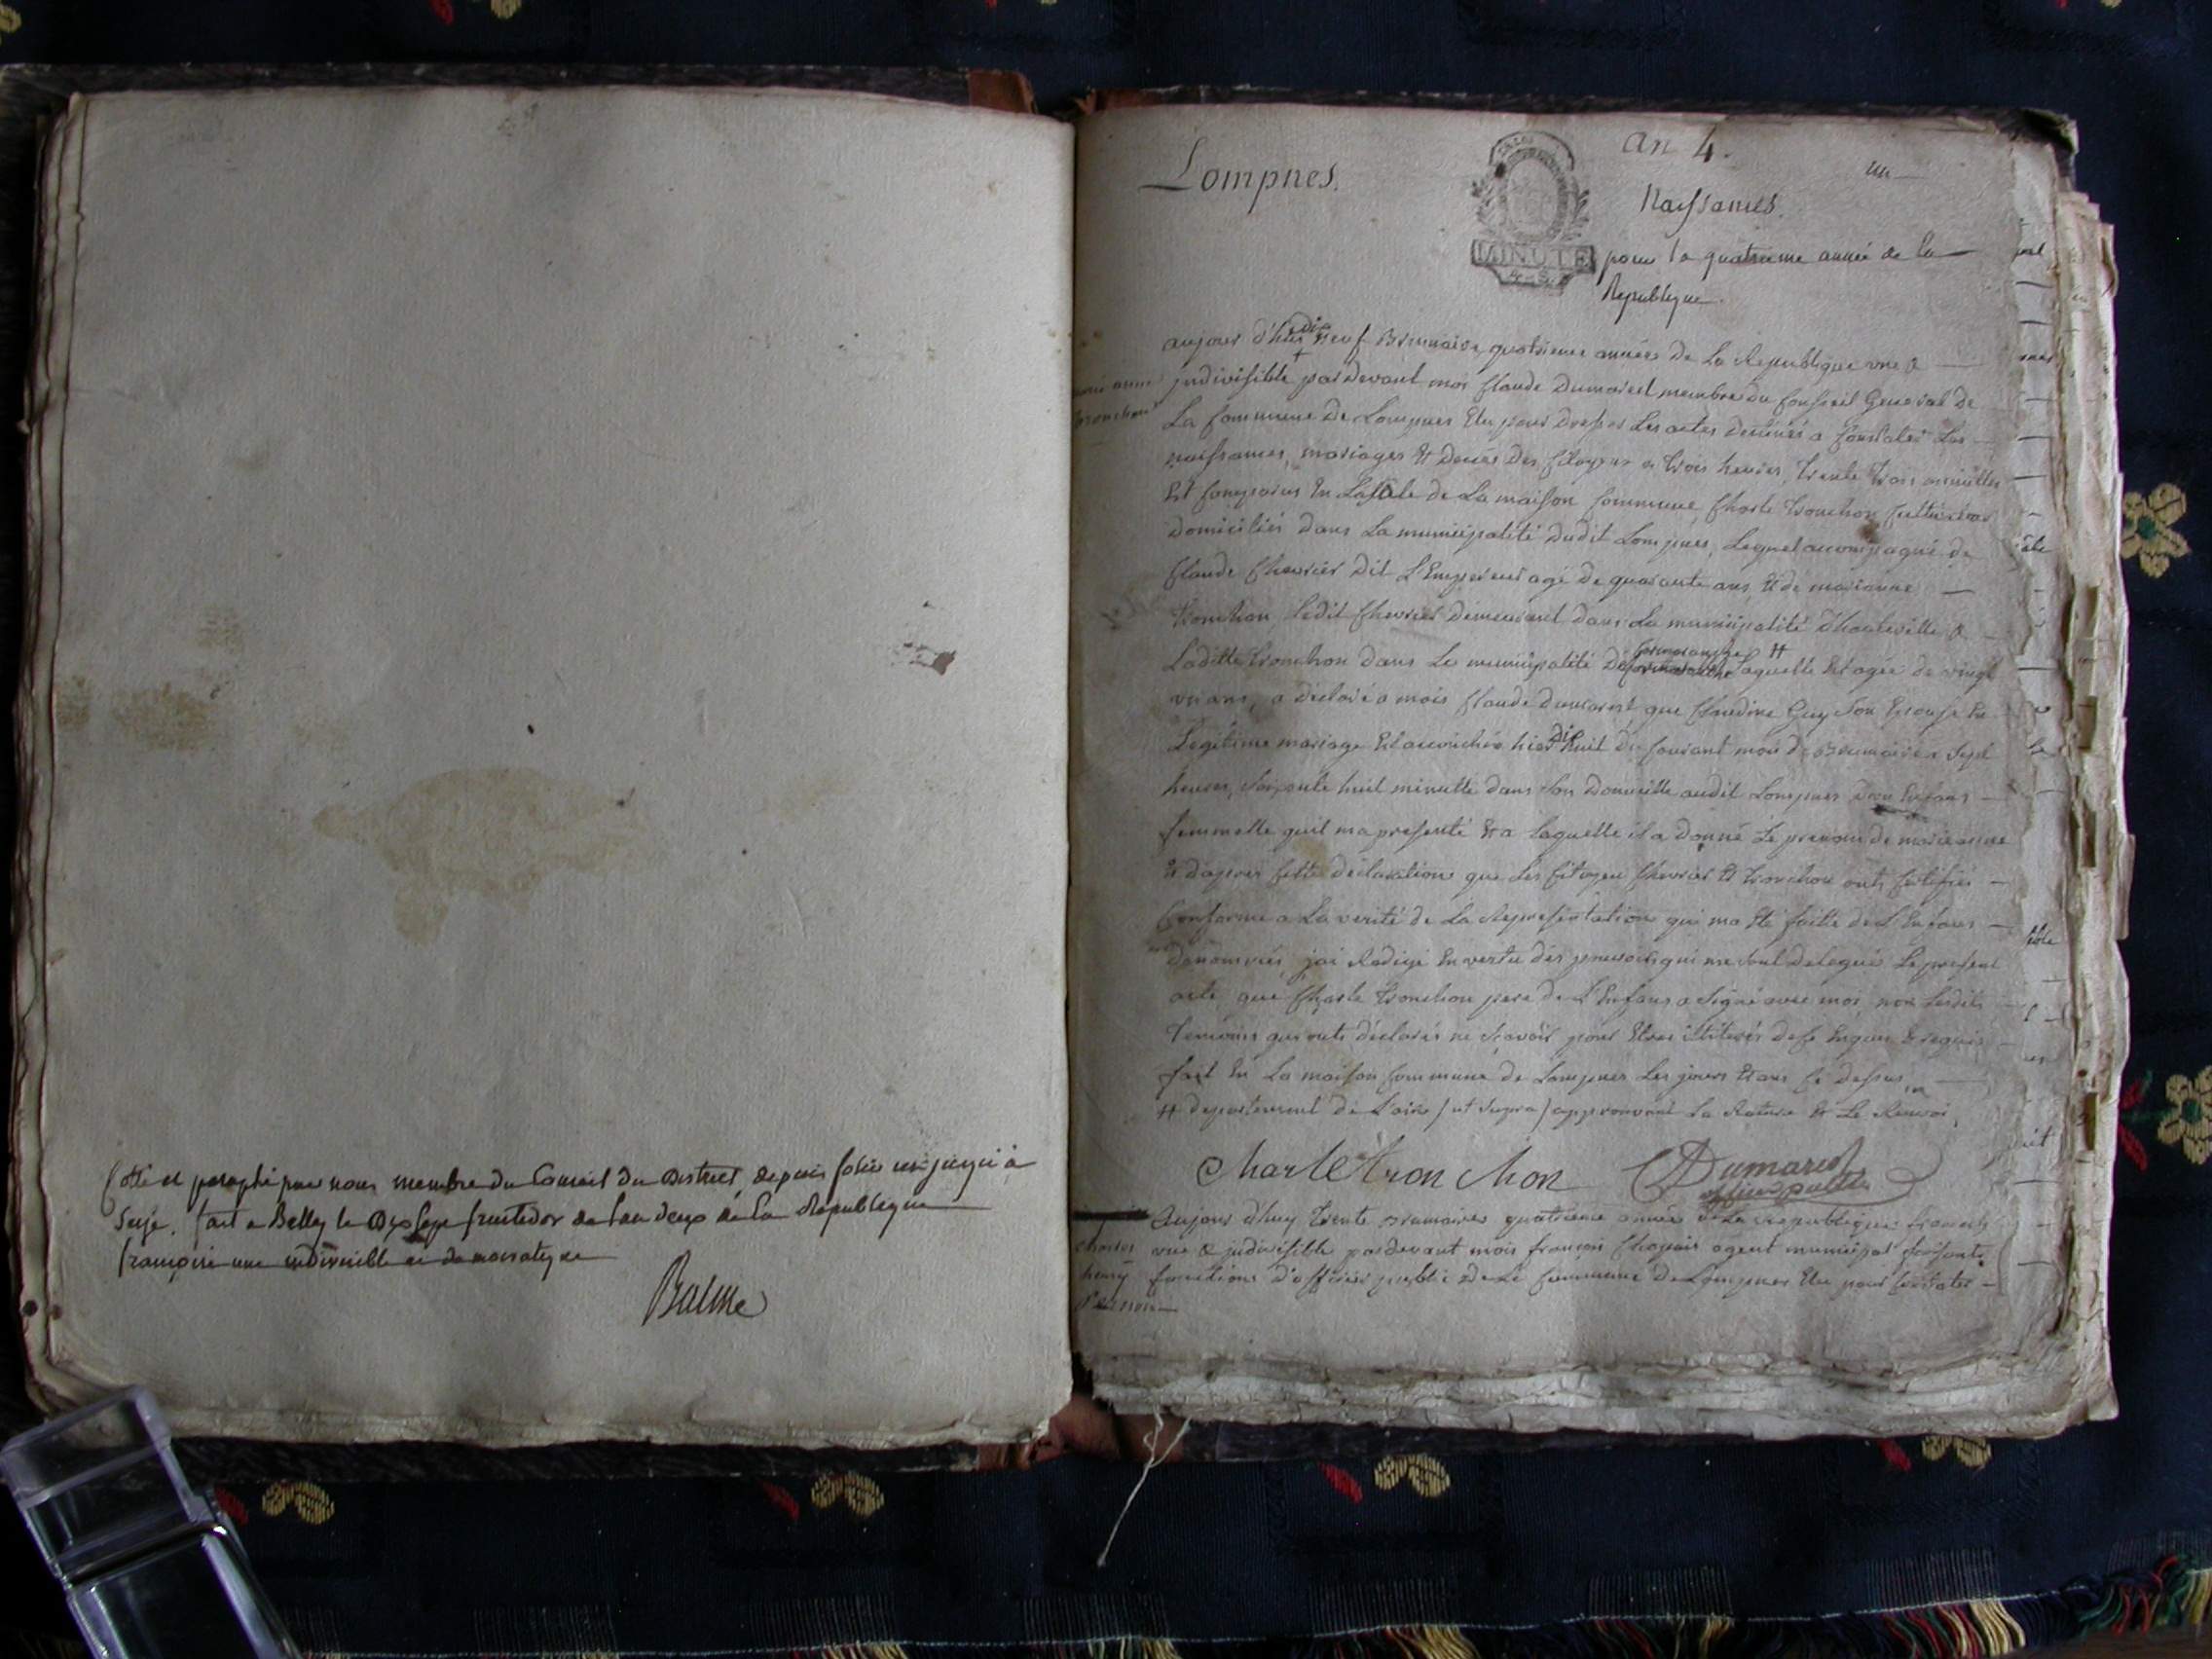 Cotté et paraphé par nous membre du Conseil du District depuis folio un jusqu'à
Seize. fait a Belley le Dix sept fructidor de l'an deux de la Republique
française une indivisible et democratique
Balme
Lompnes.
an 4.
un
Naissances.
MINUTE
pour la quatrieme année de la
Republique.
aujour d'hui dix neuf Brumaire, quatrieme années de La Republique une &
jndivisible pardevant moi Claude Dumarest membre du Conseil General de
La Commune de Lompnes Elu pour dresser Les actes destinés a Constater Les
naissances, mariages Et decés des Citoyens a trois heures, trente trois minuttes
Est Comparus En La Sale de La maison Commune Charle tronchon Cultivateur
domiciliés dans La municipalité dudit Lompnes, Lequel accompagné de
Claude Chevrier dit L'Empereur agé de quarante ans Et de marianne
tronchon Ledit Chevrier demeurant dans La municipalité d'hauteville &
Laditte tronchon dans La municipalité de Cormaranche # Laquelle Est agée de vingt
un ans, a déclaré a mois Claude dumarest que Claudine Guy Son Epouse En
Legitime mariage Est accouchée hier dix huit du Courant mois de Brumaire a Sept
heures, Soixante huit minutte dans Son Domicille audit Lompnes D'un Enfans
femmelle quil ma presenté Et a Laquelle il a donné Le prenom de marieanne
Et dapres Cette déclaration que Les Citoyen Chevrier Et tronchon onts Certifiés
Conforme a La verité de La Representation qui ma Eté faitte de L'Enfans
denommée, jai Redigé En vertu des pouvoirs qui me Sont delegué Le present
acte, que Charle tronchon pere de L'Enfans a Signé avec moi, non Lesdits
temoins qui onts déclarés ne Scavoir pour Etres
fait En La maison Commune de Lompnes Les jours Et ans Ce dessus,
# departement de L'ain / ut Supra / approuvant La Rature Et Le Renvoi,
Charle tron chon Dumarest
officier public
Aujour dhuy trente Brumaires quatrieme année de La Republique francaise
charles une & jndivisible pardevant mois francois Chapuis agent municipal faisant
henry fonctions d'officier public de La Commune de Lompnes Elu pour Constater